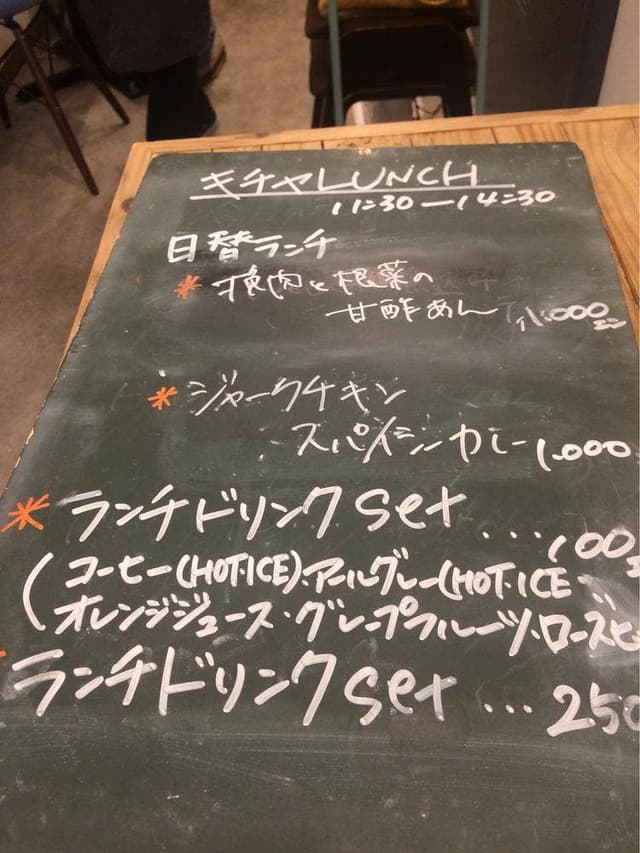 キチャLUNCH
11:30ー14:30
日替ランチ
* 挽肉と根菜の
甘酢あん 1.000
* ジャークチキン
スパイシーカレー 1.000
* ランチドリンクset ...100
(コーヒー(HOT・ICE)・アールグレー(HOT・ICE
オレンジジュース・グレープフルーツ・ローズヒ
ランチドリンクset ...250